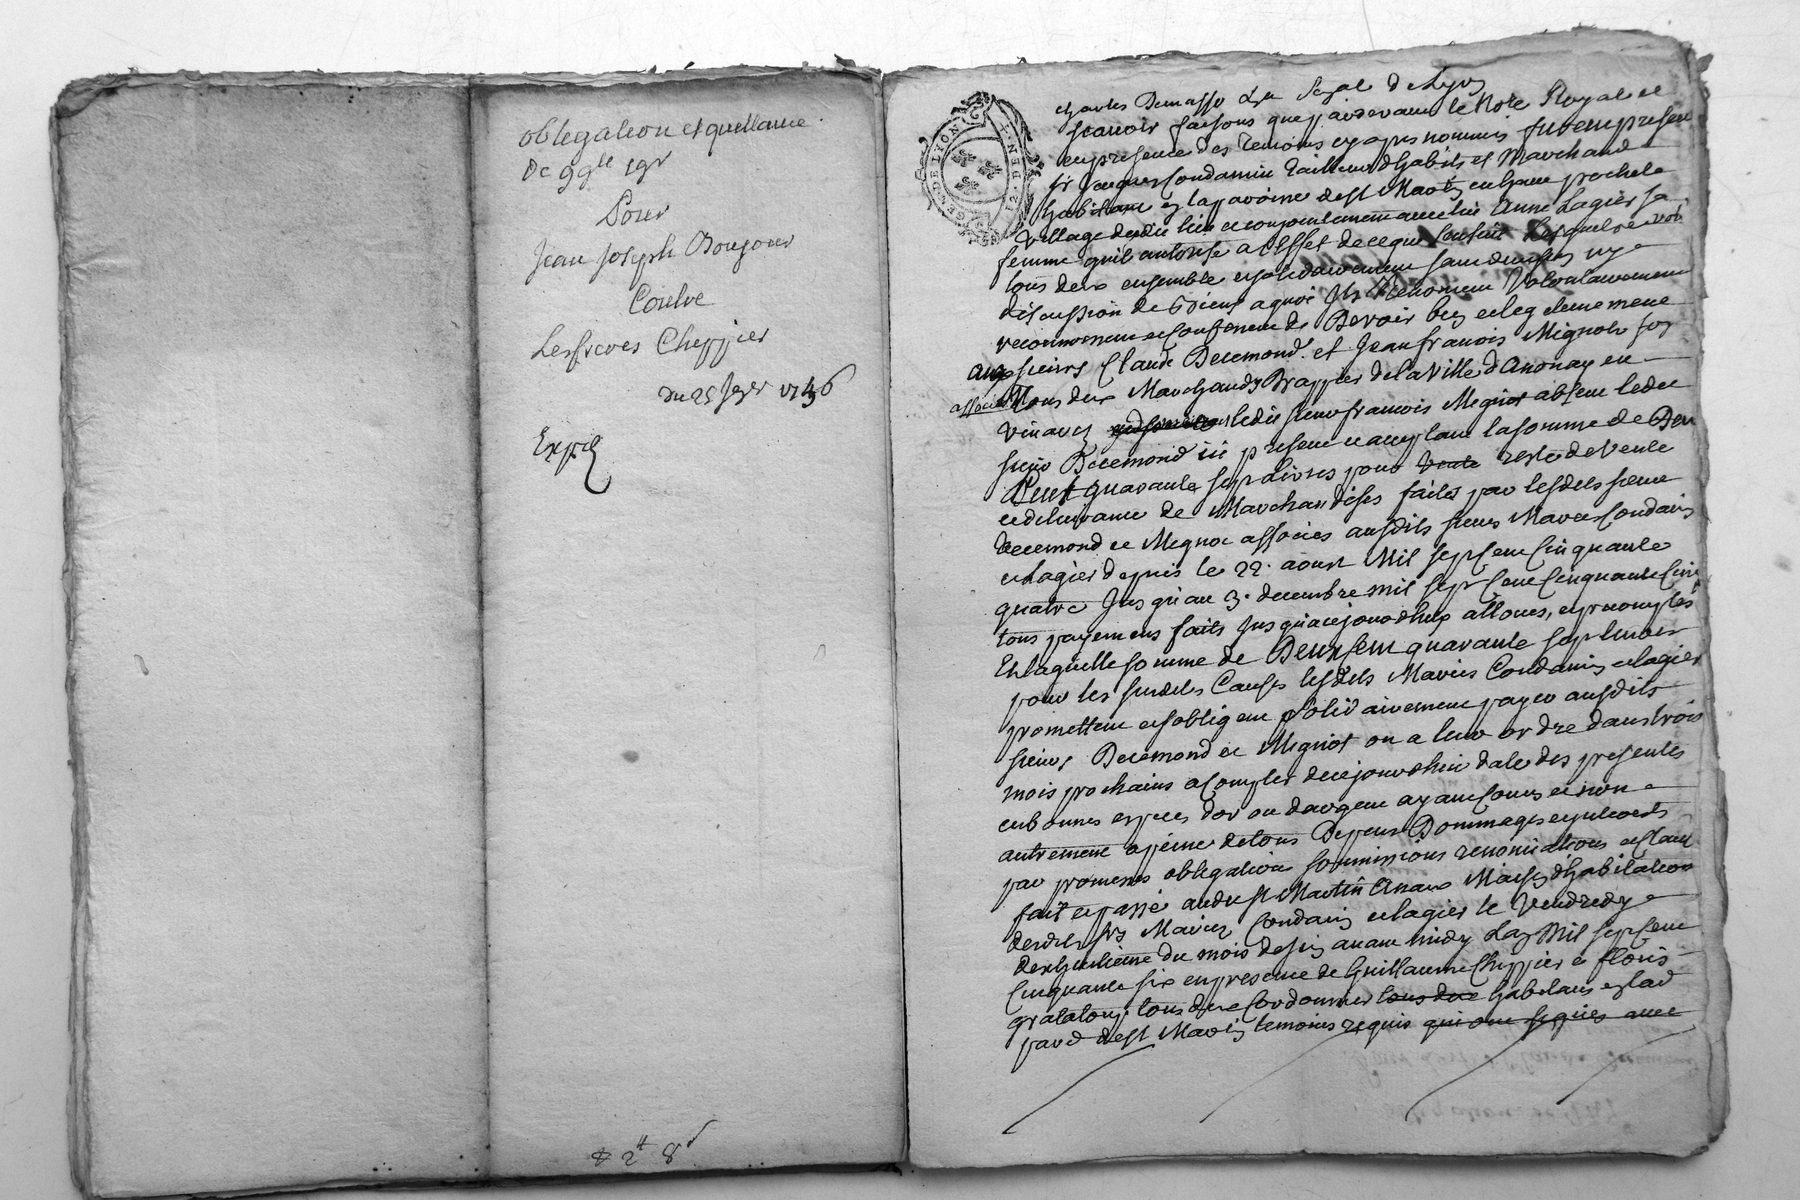 obligation et quittance
De 99# 19s
Pour
Jean Joseph Boujour
Contre
Les freres Chippier
du 25 1746
Exped
2# 8s
GEN·DE LION
DEN·
Charles Demasso Sgr de Lyon
scavoir faisons que pardevant le No.re Royal et
en presence des temoins cy apres nommés fut en presen
sr Jacques Condamin tailleur d'habits et Marchand
habitant en la parroisse de st Martin en haut proche le
village dudit lieu et conjointement avec luy Anne Lagier sa
femme qu'il autorise a l'effet de ce qui s'ensuit lesquels
tous deux ensemble et solidairement sans division ny
discussion de biens a quoi Ils Renoncent Volontairement
reconnoissent et confessent de Devoir bien et legitimement
aux sieurs Claude Decemond et Jean francois Mignot
associés
tous deux Marchands Drappiers de la Ville d'Anonay en
vivarez ledit sieur francois Mignot absent ledit
sieur Decemond ici present et acceptant la somme de Deux
Cent quarante sept livres pour vente reste de vente
et delivrance de Marchandises faites par lesdits sieurs
Decemond et Mignot associés ausdits sieurs Mariés Condamin
et Lagier depuis le 22. aoust Mil sept cent Cinquante
quatre Jusqu'au 3. decembre mil sept cent Cinquante cinq
tous payemens faits Jusqu'a cejourdhuy alloués, et precomptés
Et laquelle somme de Deux cent quarante sept livres
pour les susdites Causes lesdits Mariés Condamin et lagier
promettent et s'obligent solidairement payer ausdits
sieurs Decemond et Mignot ou a leur ordre dans trois
mois prochains a Compter de cejourdhui date des presentes
en bonnes especes d'or ou d'argent ayant Cours et non
autrement a peine de tous Depens Dommages et interets
par promesses obligation soumissions renonciations et clauses
fait et passé audit st Martin Enhaut Maison d'habitation
desdits srs Mariez Condamin et lagier le Vendredy
dixhuitieme du mois de juin avant midy L'an Mil sept cent
Cinquante six en presence de Guillaume Chippier et floris
gratalou tous deux Cordonnier tous deux habitans en lad
parr de st Martin temoins requis qui ont signés avec